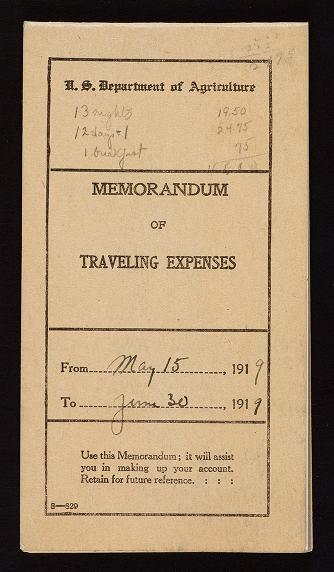 U. S. Department of Agriculture
13 nights 19.50
12 days + 1 24.75
1 breakfast 75
MEMORANDUM
OF
TRAVELING EXPENSES
From May 15, 1919
To June 30, 1919
Use this Memorandum; it will assist
you in making up your account.
Retain for future reference. : : :
8—829